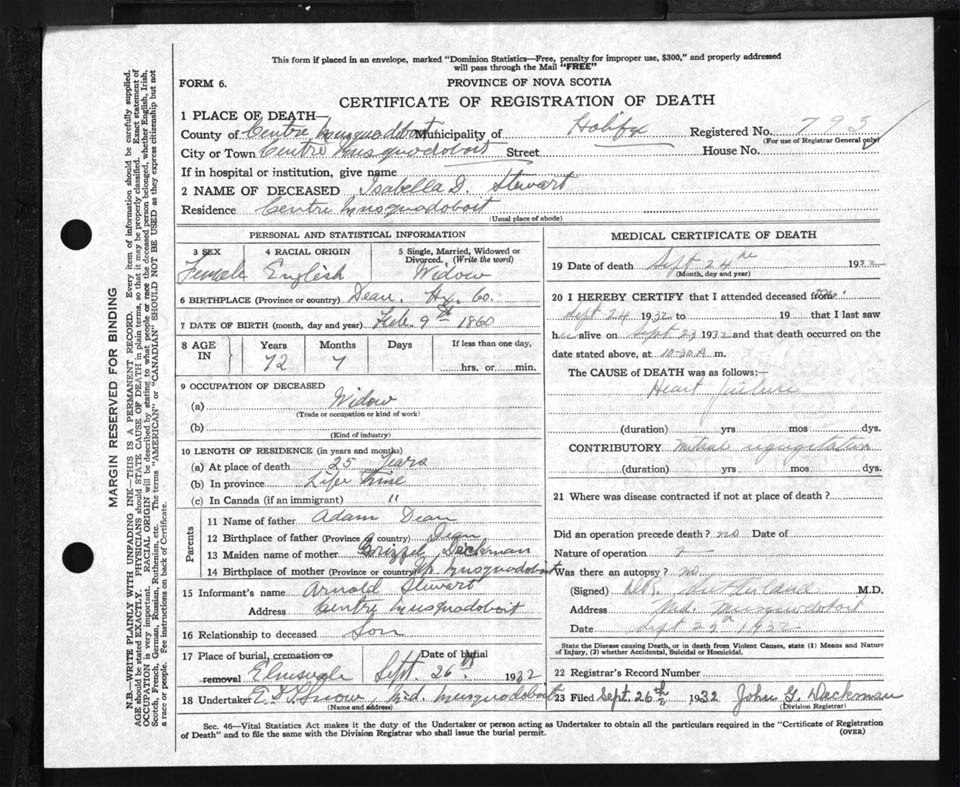 This form if placed in an envelope, marked "Dominion Statistics—Free, penalty for improper use, $300," and properly addressed
will pass through the Mail "FREE"
FORM 6. PROVINCE OF NOVA SCOTIA
CERTIFICATE OF REGISTRATION OF DEATH
1 PLACE OF DEATH—
County of Centre Musquodoboit Municipality of Halifax Registered No. 793
(For use of Registrar General only)
City or Town Centre Musquodoboit Street House No.
If in hospital or institution, give name
2 NAME OF DECEASED Isabella D. Stewart
Residence Centre Musquodoboit
(Usual place of abode)
PERSONAL AND STATISTICAL INFORMATION
3 SEX 4 RACIAL ORIGIN 5 Single, Married, Widowed or
Divorced. (Write the word)
Female English Widow
6 BIRTHPLACE (Province or country) Dean. Hx. Co.
7 DATE OF BIRTH (month, day and year) Feb. 9th 1860
8 AGE IN Years Months Days If less than one day,
72 7 hrs. or min.
9 OCCUPATION OF DECEASED
(a) Widow
(Trade or occupation or kind of work)
(b)
(Kind of industry)
10 LENGTH OF RESIDENCE (in years and months)
(a) At place of death 25 Years
(b) In province Life time
(c) In Canada (if an immigrant) "
Parents
11 Name of father Adam Dean
12 Birthplace of father (Province or country) Dean
13 Maiden name of mother Grizzel Dickman
14 Birthplace of mother (Province or country) Musquodoboit
15 Informant's name Arnold Stewart
Address Centre Musquodoboit
16 Relationship to deceased Son
17 Place of burial, cremation or Date of burial
removal Elmsvale Sept. 26th 1932
18 Undertaker Mid. Musquodoboit
(Name and address)
MEDICAL CERTIFICATE OF DEATH
19 Date of death Sept 24th 1932
(Month, day and year)
20 I HEREBY CERTIFY that I attended deceased from
Sept 24 1932 to 19 that I last saw
her alive on Sept 23 1932 and that death occurred on the
date stated above, at 10-30 A m.
The CAUSE of DEATH was as follows:—
Heart failure
(duration) yrs mos dys.
CONTRIBUTORY Mitral regurgitation
(duration) yrs mos dys.
21 Where was disease contracted if not at place of death?
Did an operation precede death? no Date of
Nature of operation
Was there an autopsy? no
(Signed) Sutherland M.D.
Address Mid. Musquodoboit
Date Sept 25th 1932
State the Disease causing Death, or in death from Violent Causes, state (1) Means and Nature
of Injury, (2) whether Accidental, Suicidal or Homicidal.
22 Registrar's Record Number
23 Filed Sept. 26th 1932 John G. Dickman
(Division Registrar)
Sec. 46—Vital Statistics Act makes it the duty of the Undertaker or person acting as Undertaker to obtain all the particulars required in the "Certificate of Registration
of Death" and to file the same with the Division Registrar who shall issue the burial permit. (OVER)
MARGIN RESERVED FOR BINDING
N.B.—WRITE PLAINLY WITH UNFADING INK—THIS IS A PERMANENT RECORD. Every item of information should be carefully supplied.
AGE should be stated EXACTLY. PHYSICIANS should STATE CAUSE OF DEATH in plain terms, so that it may be properly classified. Exact statement of
OCCUPATION is very important. RACIAL ORIGIN will be described by stating to what people or race the deceased person belonged, whether English, Irish,
Scotch, French, German, Russian, Ruthenian, etc. The terms "AMERICAN" or "CANADIAN" SHOULD NOT BE USED as they express citizenship but not
a race or people. See instructions on back of Certificate.